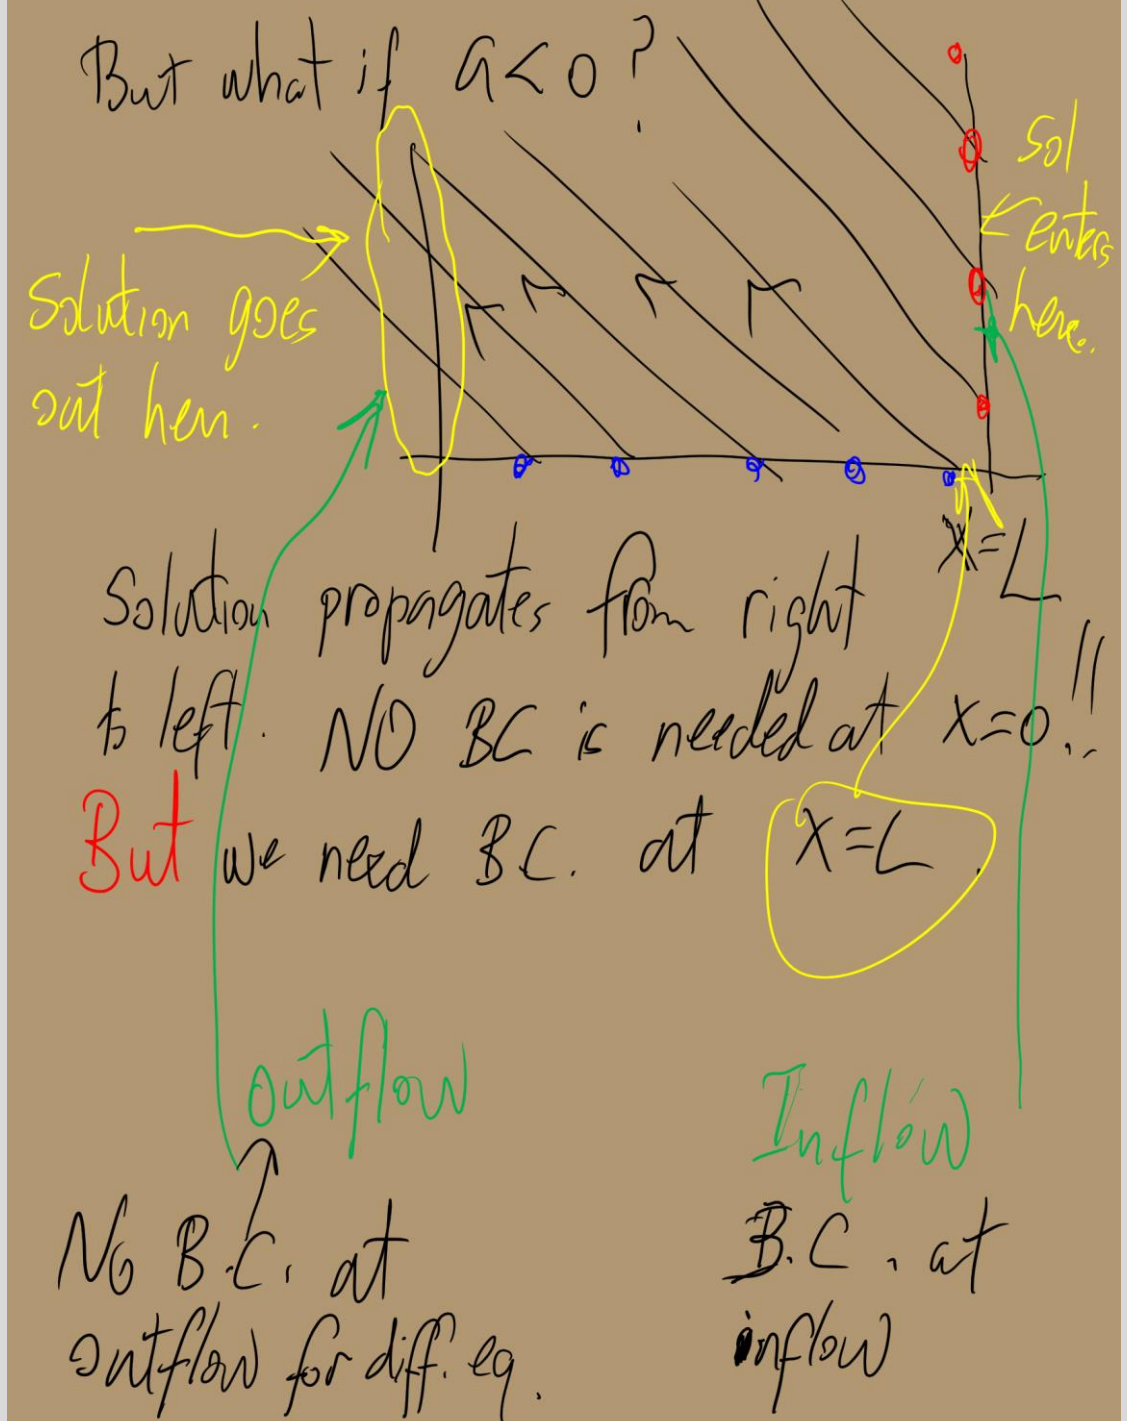 But what if a<0?
Sol
enters
here.
Solution goes
out here.
x=L
Solution propagates from right
to left. NO BC is needed at x=0!!
But we need B.C. at x=L.
outflow
Inflow
No B.C. at
outflow for diff. eq.
B.C. at
inflow